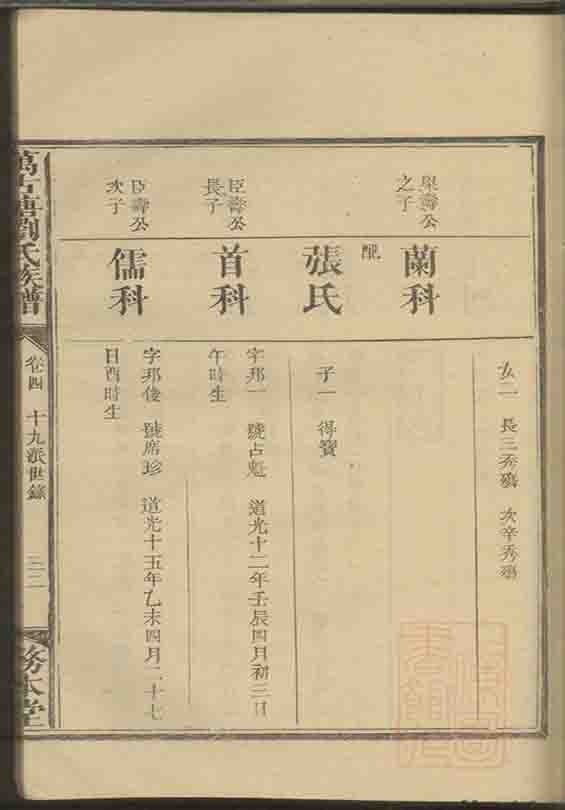 女二 長三秀殤 次辛秀殤
之子
蘭科
配
張氏
子一 得寶
臣壽公
長子
首科
字邦一 號占魁 道光十二年壬辰四月初三日
午時生
臣壽公
次子
儒科
字邦俊 號席珍 道光十五年乙未四月二十七
日酉時生
萬古塘劉氏族譜
卷四 十九派世錄
務本堂